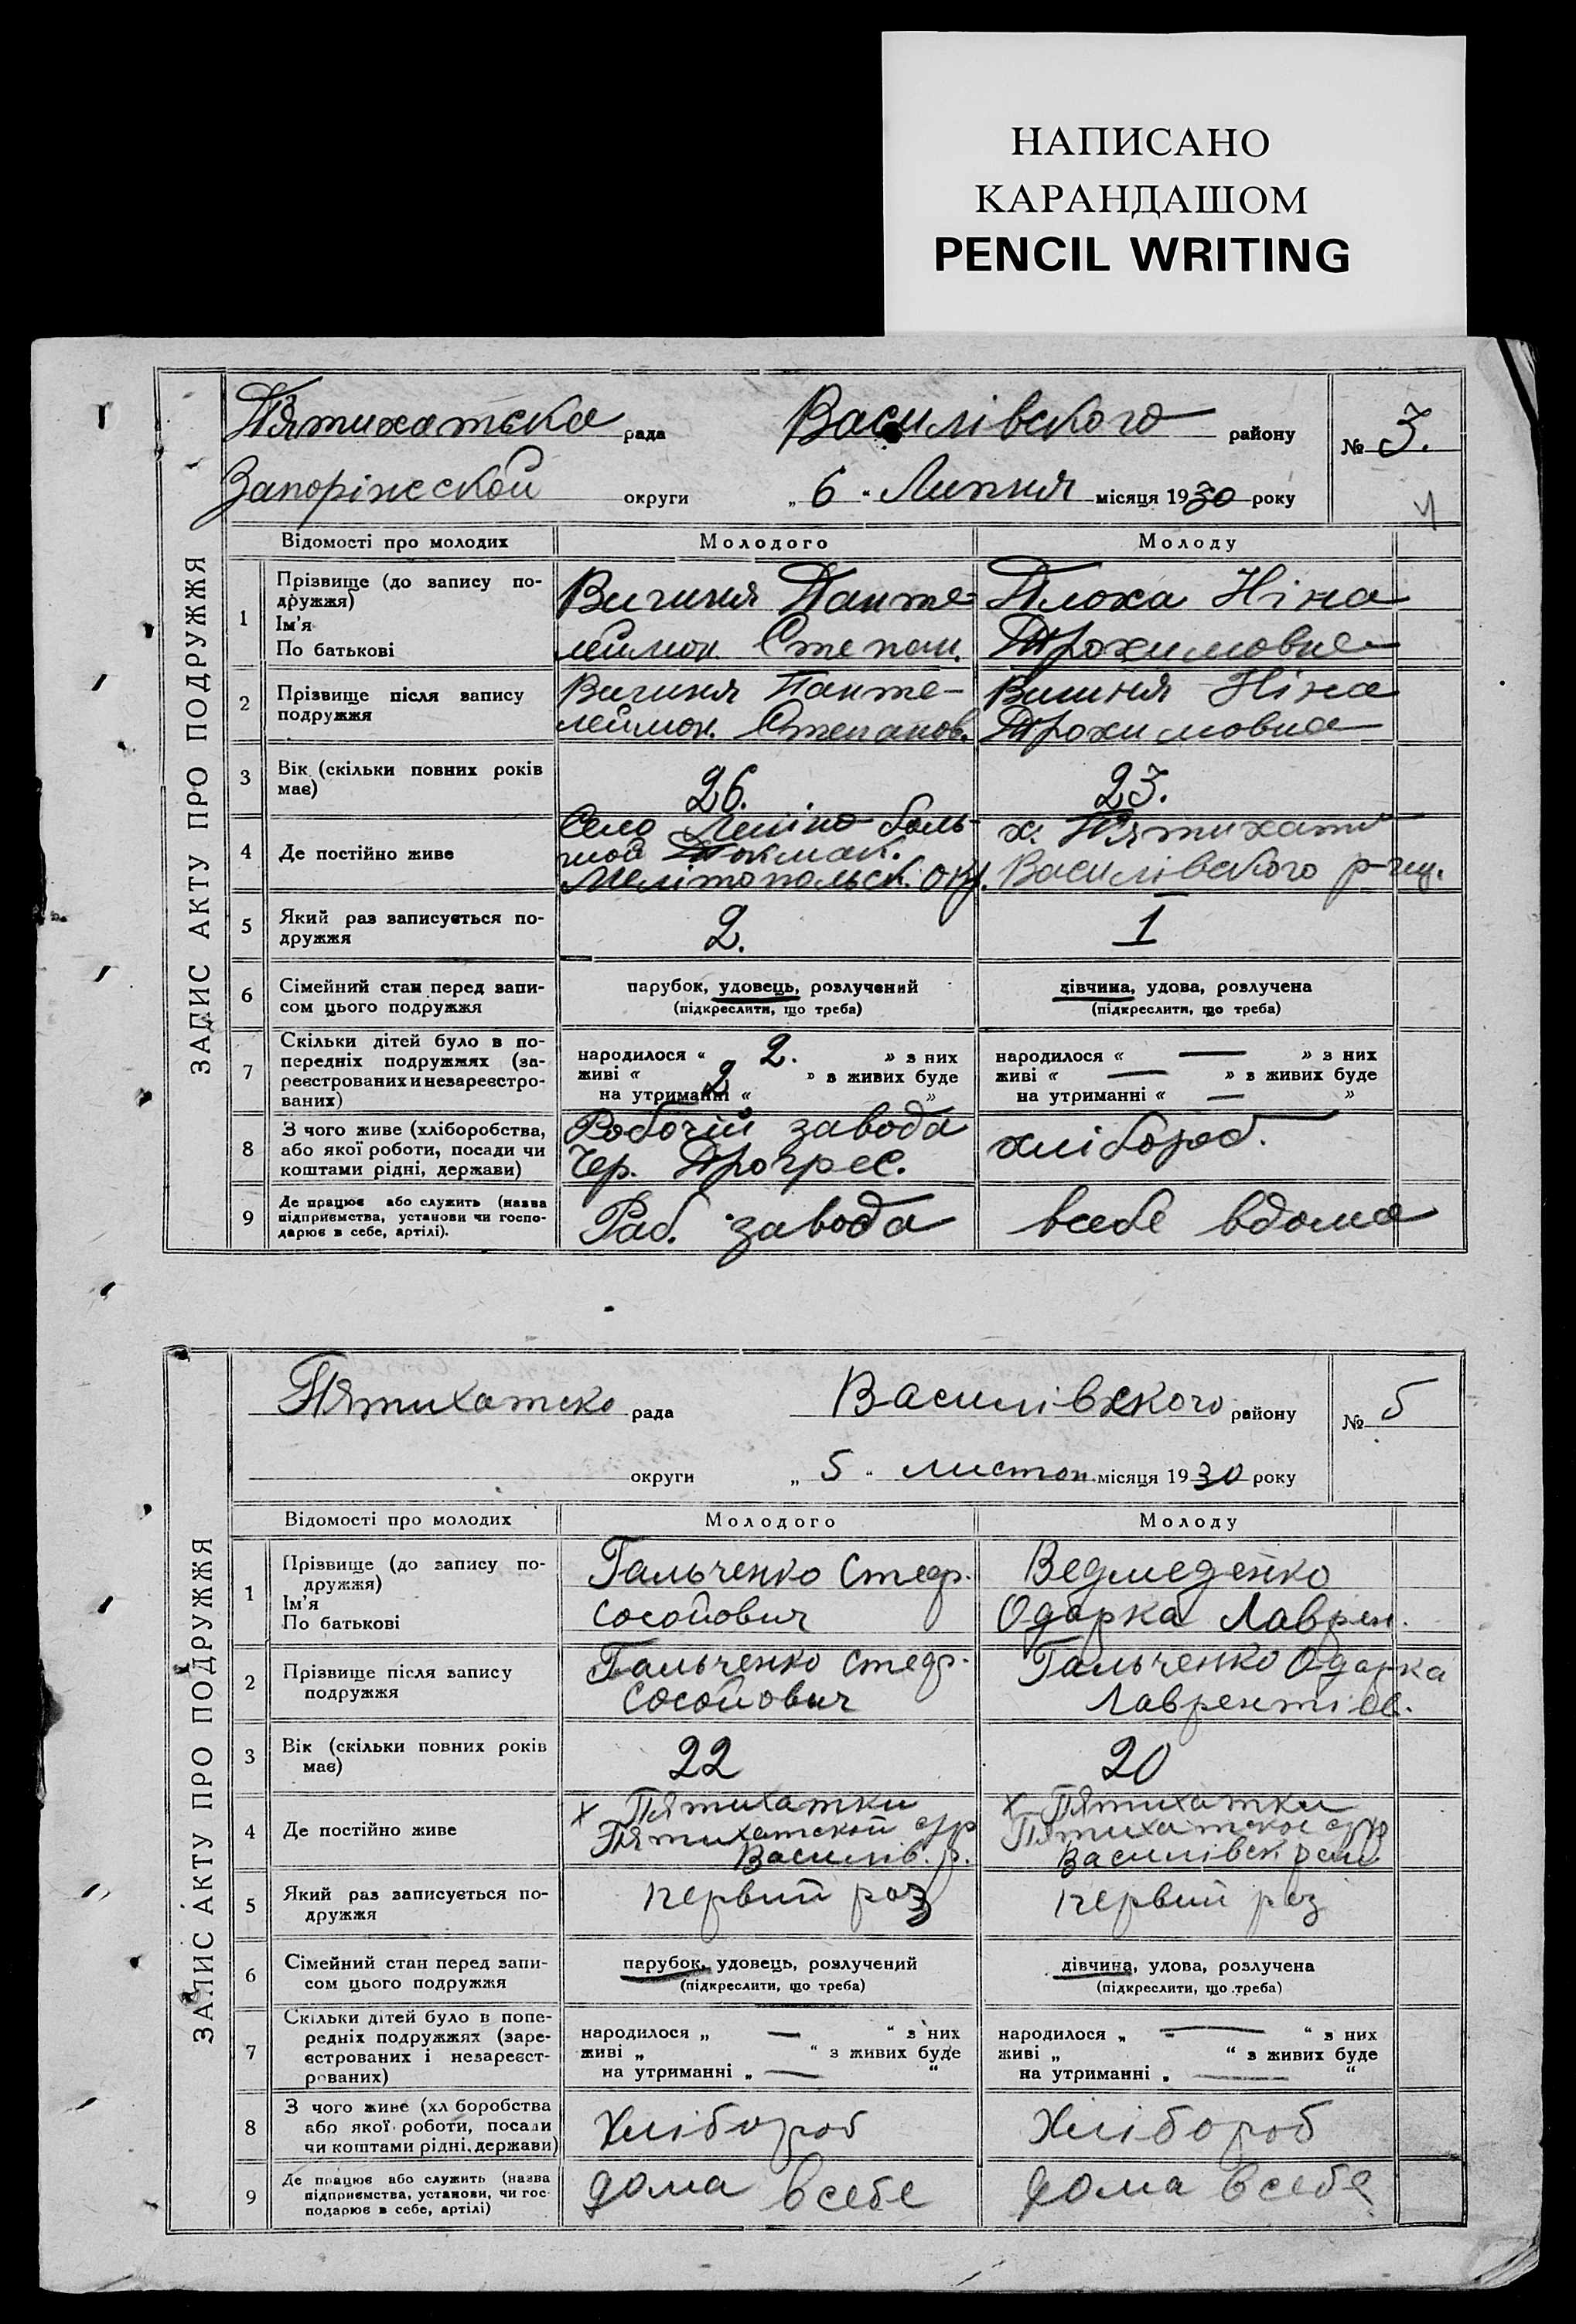 НАПИСАНО
КАРАНДАШОМ
PENCIL WRITING
ЗАПИС АКТУ ПРО ПОДРУЖЖЯ
Пятихатска рада Василівского району № 3.
Запоріжской округи „ 6 “ Липня місяця 1930 року
Відомості про молодих Молодого Молоду
1 Прізвище (до запису по-
дружжя)
Ім'я
По батькові
Вигиня Панте-
леймон Степан.
Плоха Ніна
Трохимовна
2 Прізвище після запису
подружжя
Вигиня Панте-
леймон. Степанов.
Вишня Ніна
Трохимовна
3 Вік (скільки повних років
має)
26.
23.
4 Де постійно живе
Село Леніно боль-
шой Токмак.
Мелітопольск. Окр.
х. Пятихатки
Василівского р-ну.
5 Який раз записується по-
дружжя
2.
1
6 Сімейний стан перед запи-
сом цього подружжя
парубок, удовець, розлучений
(підкреслити, що треба)
дівчина, удова, розлучена
(підкреслити, що треба)
7 Скільки дітей було в по-
передніх подружжях (за-
реєстрованих и незареєстро-
ваних)
народилося “ 2. » з них
живі “ 2 » з живих буде
на утриманні “ »
народилося “ — » з них
живі “ — » з живих буде
на утриманні “ — »
8 З чого живе (хліборобства,
або якої роботи, посади чи
коштами рідні, держави)
Робочій завода
Чер. Прогрес.
хлібороб.
9 Де працює або служить (назва
підприємства, установи чи госпо-
дарює в себе, артілі).
Раб. завода
всебе вдома
ЗАПИС АКТУ ПРО ПОДРУЖЖЯ
Пятихатско рада Василівского району № 5
округи „ 5 “ листоп місяця 1930 року
Відомості про молодих Молодого Молоду
1 Прізвище (до запису по-
дружжя)
Ім'я
По батькові
Гальченко Стеф.
Сосойович
Ведмеденко
Одарка Лаврен.
2 Прізвище після запису
подружжя
Гальченко Стеф.
Сосойович
Гальченко Одарка
Лаврентіов.
3 Вік (скільки повних років
має)
22
20
4 Де постійно живе
х Пятихатки
Пятихатской с/р
Василів. р.
х Пятихатки
Пятихатской с/р
Василівск рай
5 Який раз записується по-
дружжя
первий раз
первий раз
6 Сімейний стан перед запи-
сом цього подружжя
парубок, удовець, розлучений
(підкреслити, що треба)
дівчина, удова, розлучена
(підкреслити, що треба)
7 Скільки дітей було в попе-
редніх подружжях (заре-
єстрованих і незареєст-
рованих)
народилося „ — “ з них
живі „ “ з живих буде
на утриманні „ — “
народилося „ — “ з них
живі „ “ з живих буде
на утриманні „ — “
8 З чого живе (хліборобства
або якої роботи, посади
чи коштами рідні, держави)
Хлібороб
Хлібороб
9 Де працює або служить (назва
підприємства, установи, чи гос-
подарює в себе, артілі)
дома в себе
дома в себе